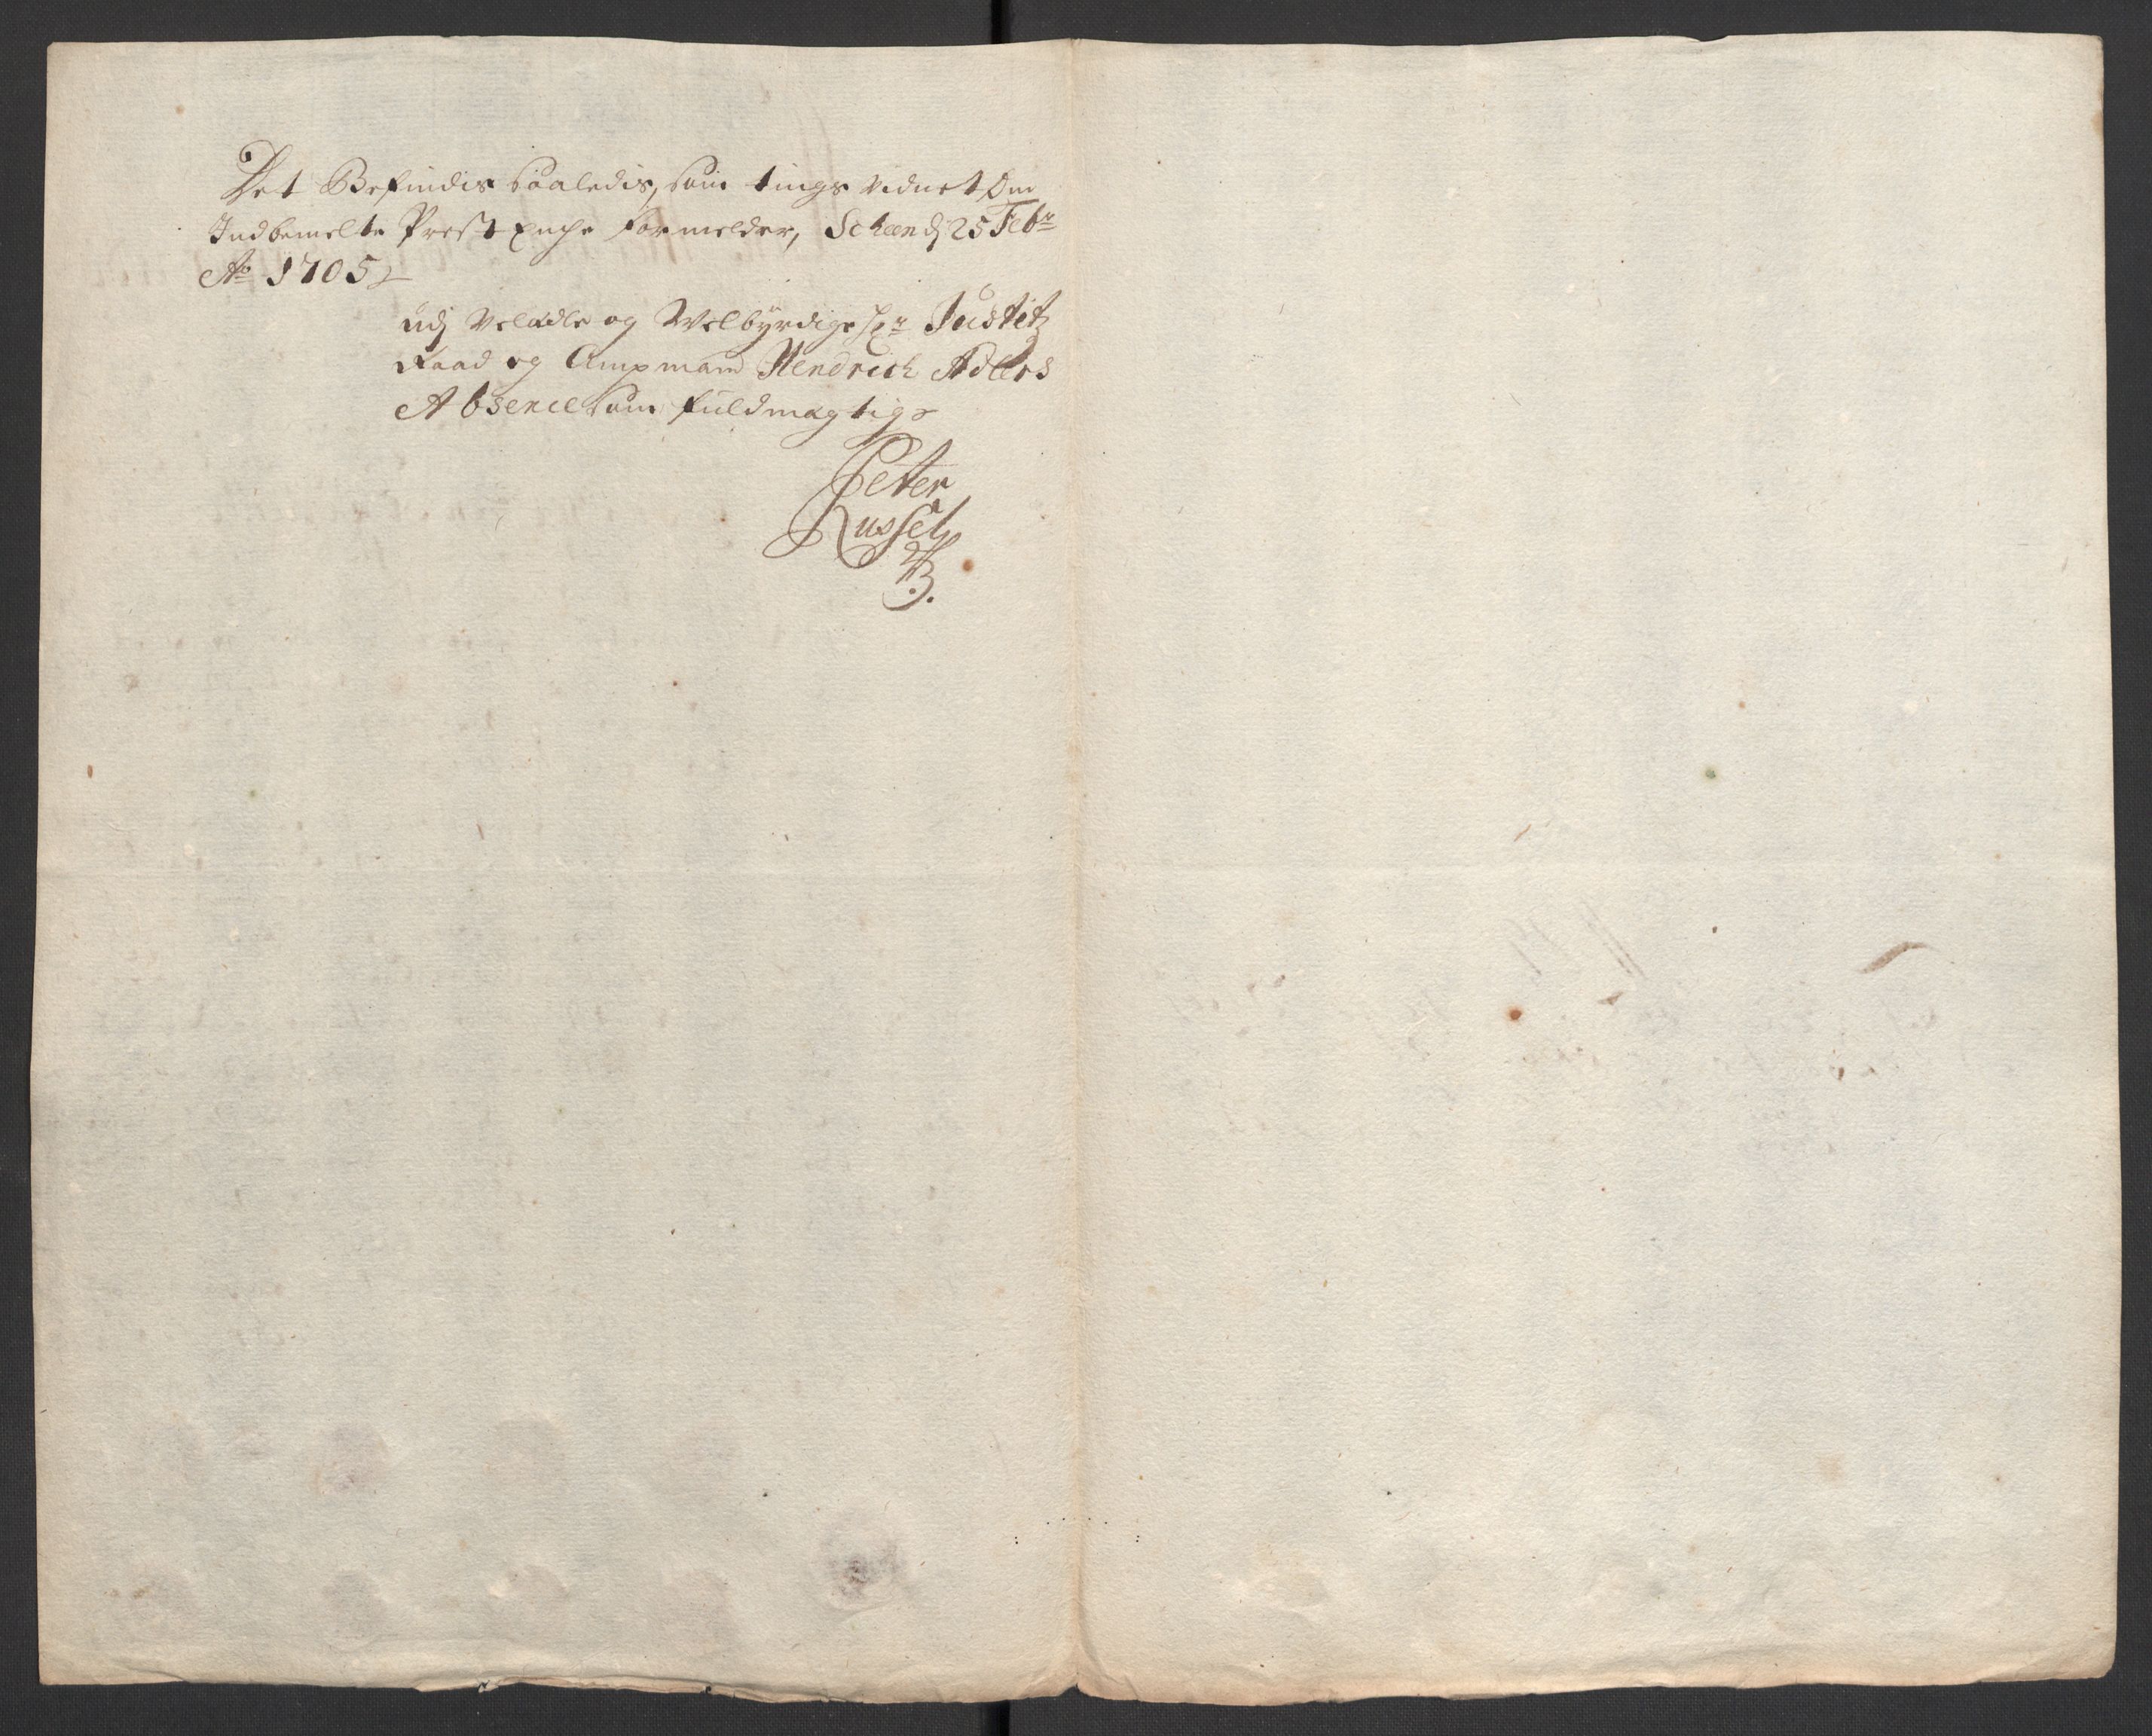 Det Befindis saaledis, som tings vidnet Om
Indbemelte Prest Enche formelder, Scheen dj 25 Febr
Ao 1705
udj Velædle og Welbyrdige Hr Justitz
Raad og Ampmand Hendrich Adlers
Absence som fuldmagtig
Peter
Russel